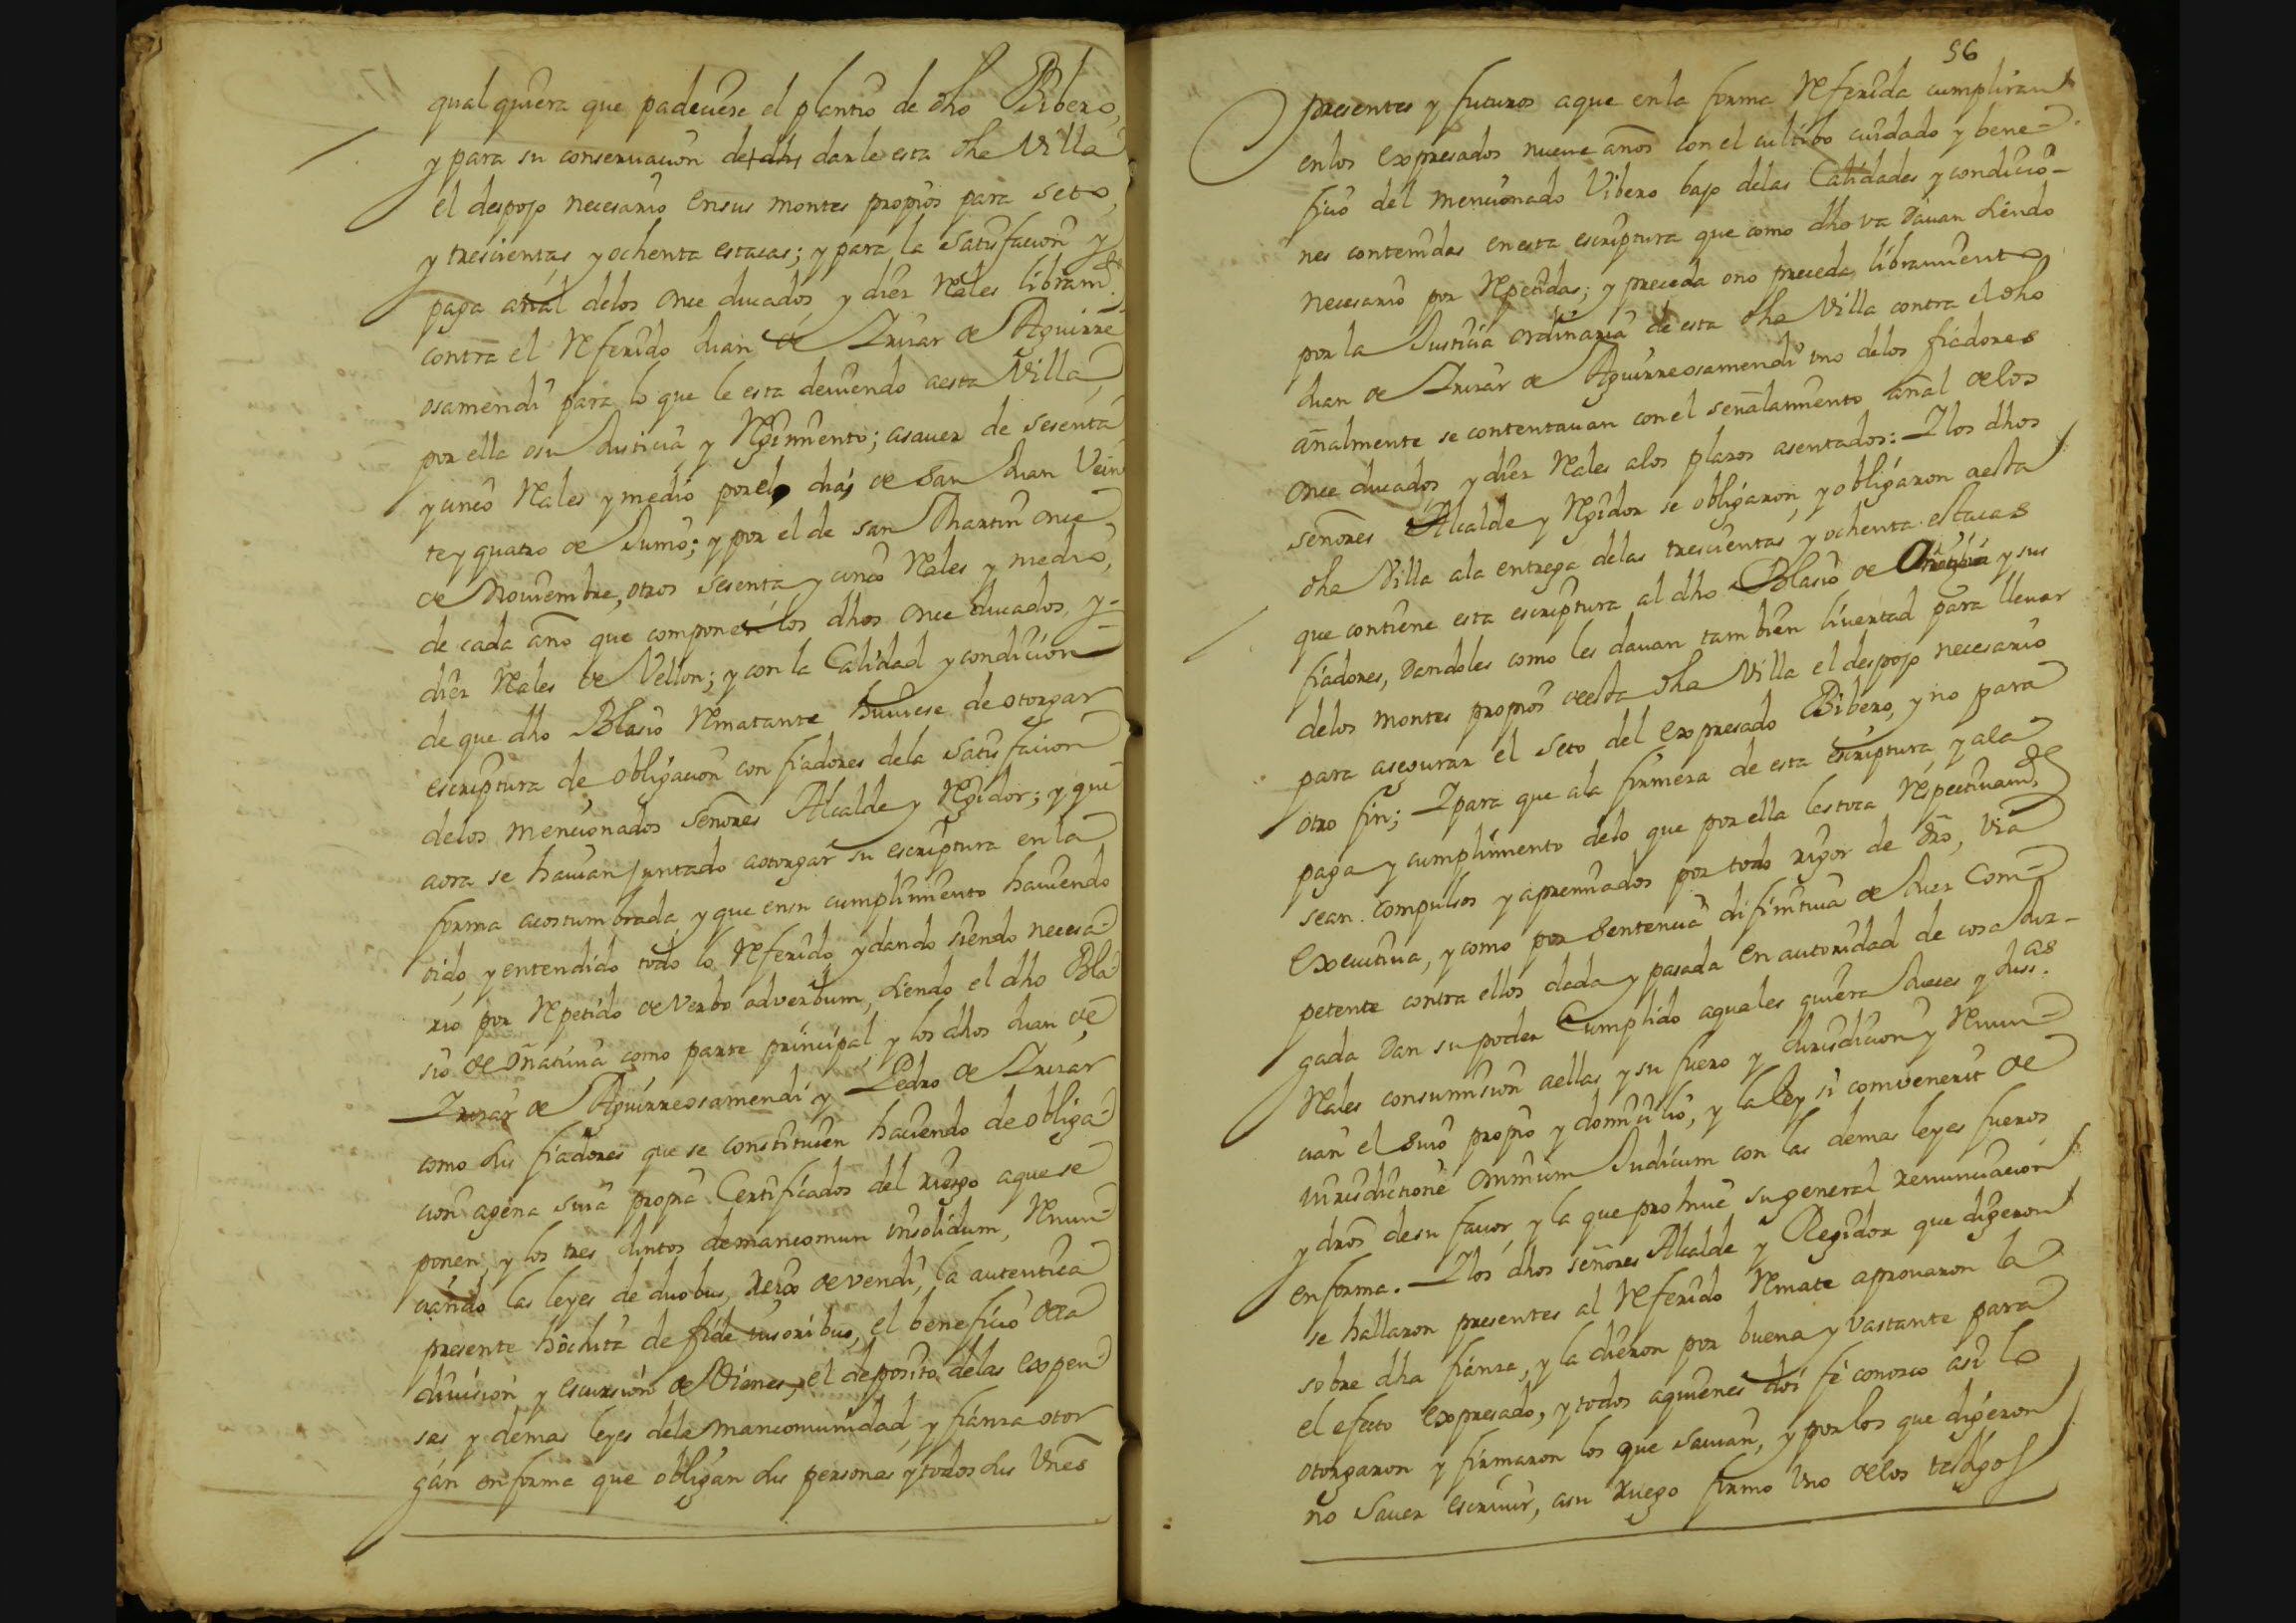 qual quiera que padeciere el plantio de dho Bibero,
y para su conseruacion darle esta dha Villa
el despojo necesario en sus montes propios para seto,
y trescientas y ochenta estacas; y para la satisfacion y
paga añal delos once ducados y diez Rales libram.to
contra el Referido Juan de Irizar de Aguirre
osamendi para lo que le esta deuiendo a esta Villa
por ella o su Justicia y Regimiento; asauer de sesenta
y cinco Rales y medio por el dia de san Juan Vein
te y quatro de Junio; y por el de san Martin once
de Nouiembre, otros sesenta y cinco Rales y medio,
de cada año que componen los dhos once ducados, y
diez Rales de Vellon; y con la Calidad y condicion
de que dho Blasio Rematante huuiese de otorgar
escriptura de obligacion con fiadores dela satisfacion
delos mencionados señores Alcalde y Regidor; y que
aora se hauian juntado a otorgar su escriptura en la
forma acostumbrada y que en su cumplimiento hauiendo
oido, y entendido todo lo Referido y dando siendo necesa-
rio por Repetido de Verbo adverbum, siendo el dho Bla-
sio de Oñatiuia como parte principal, y los dhos Juan de
Irizar de Aguirreosamendi y Pedro de Irizar
como sus fiadores que se constituien haciendo de obliga-
cion agena suia propia Certificados del riesgo aque se
ponen, y los tres juntos demancomun insolidum, Renun-
ciando las leyes de duobus, rex de vendi, la autentica
presente hochita de fide iusoribus, el beneficio dela
diuision y escursion de Vienes, el deposito delas expen-
sas y demas leyes dela mancomunidad, y fianza otor
gan en forma que obligan sus personas y todos sus Vnes
56
presentes y futuros aque enla forma Referida cumpliran
en los expresados nueue años con el cultibo cuidado y bene-
ficio del mencionado Vibero bajo delas Calidades y condicio-
nes contenidas en esta escriptura que como dho va dauan siendo
necesario por Repetidas; y preceda o no preceda libramiento
por la Justicia ordinaria de esta dha Villa contra el dho
Juan de Irizar de Aguirreosamendi uno delos fiadores
añalmente se contentauan con el señalamiento añal delos
once ducados y diez Rales alos plazos asentados: Y los dhos
señores Alcalde y Regidor se obligaron, y obligaron aesta
dha Villa ala entrega delas trescientas y ochenta estacas
que contiene esta escriptura al dho Blasio de Oñatiuia y sus
fiadores, dandoles como les dauan tambien liuertad para lleuar
delos montes propios deesta dha Villa el despojo necesario
para asegurar el seto del expresado Bibero, y no para
otro fin; Y para que ala firmeza de esta escriptura, y ala
paga y cumplimiento delo que por ella les toca Respectiuam.te
sean compulsos y apremiados por todo rigor de dro, via
executiua, y como por sentencia difinitiua de Juez Com-
petente contra ellos dada y pasada en autoridad de cosa Juz-
gada dan su poder Cumplido aquales quiera Jueces y Juss.as
Rales con sumision aellas y su fuero y Jurisdicion y Renun-
cian el suio propio y domicilio, y la ley si convenerit de
iurisdictione omnium Judicum con las demas leyes fueros
y dros de su fauor, y la que prohiue su general renunciacion
en forma. Y los dhos señores Alcalde y Regidor que digeron
se hallaron presentes al Referido Remate aprouaron la
sobre dha fianza, y la dieron por buena y vastante para
el efecto expresado, y todos aquienes doi fe conozco asi lo
otorgaron y firmaron los que sauian, y por los que digeron
no sauer escriuir, asu ruego firmo Vno delos testigos